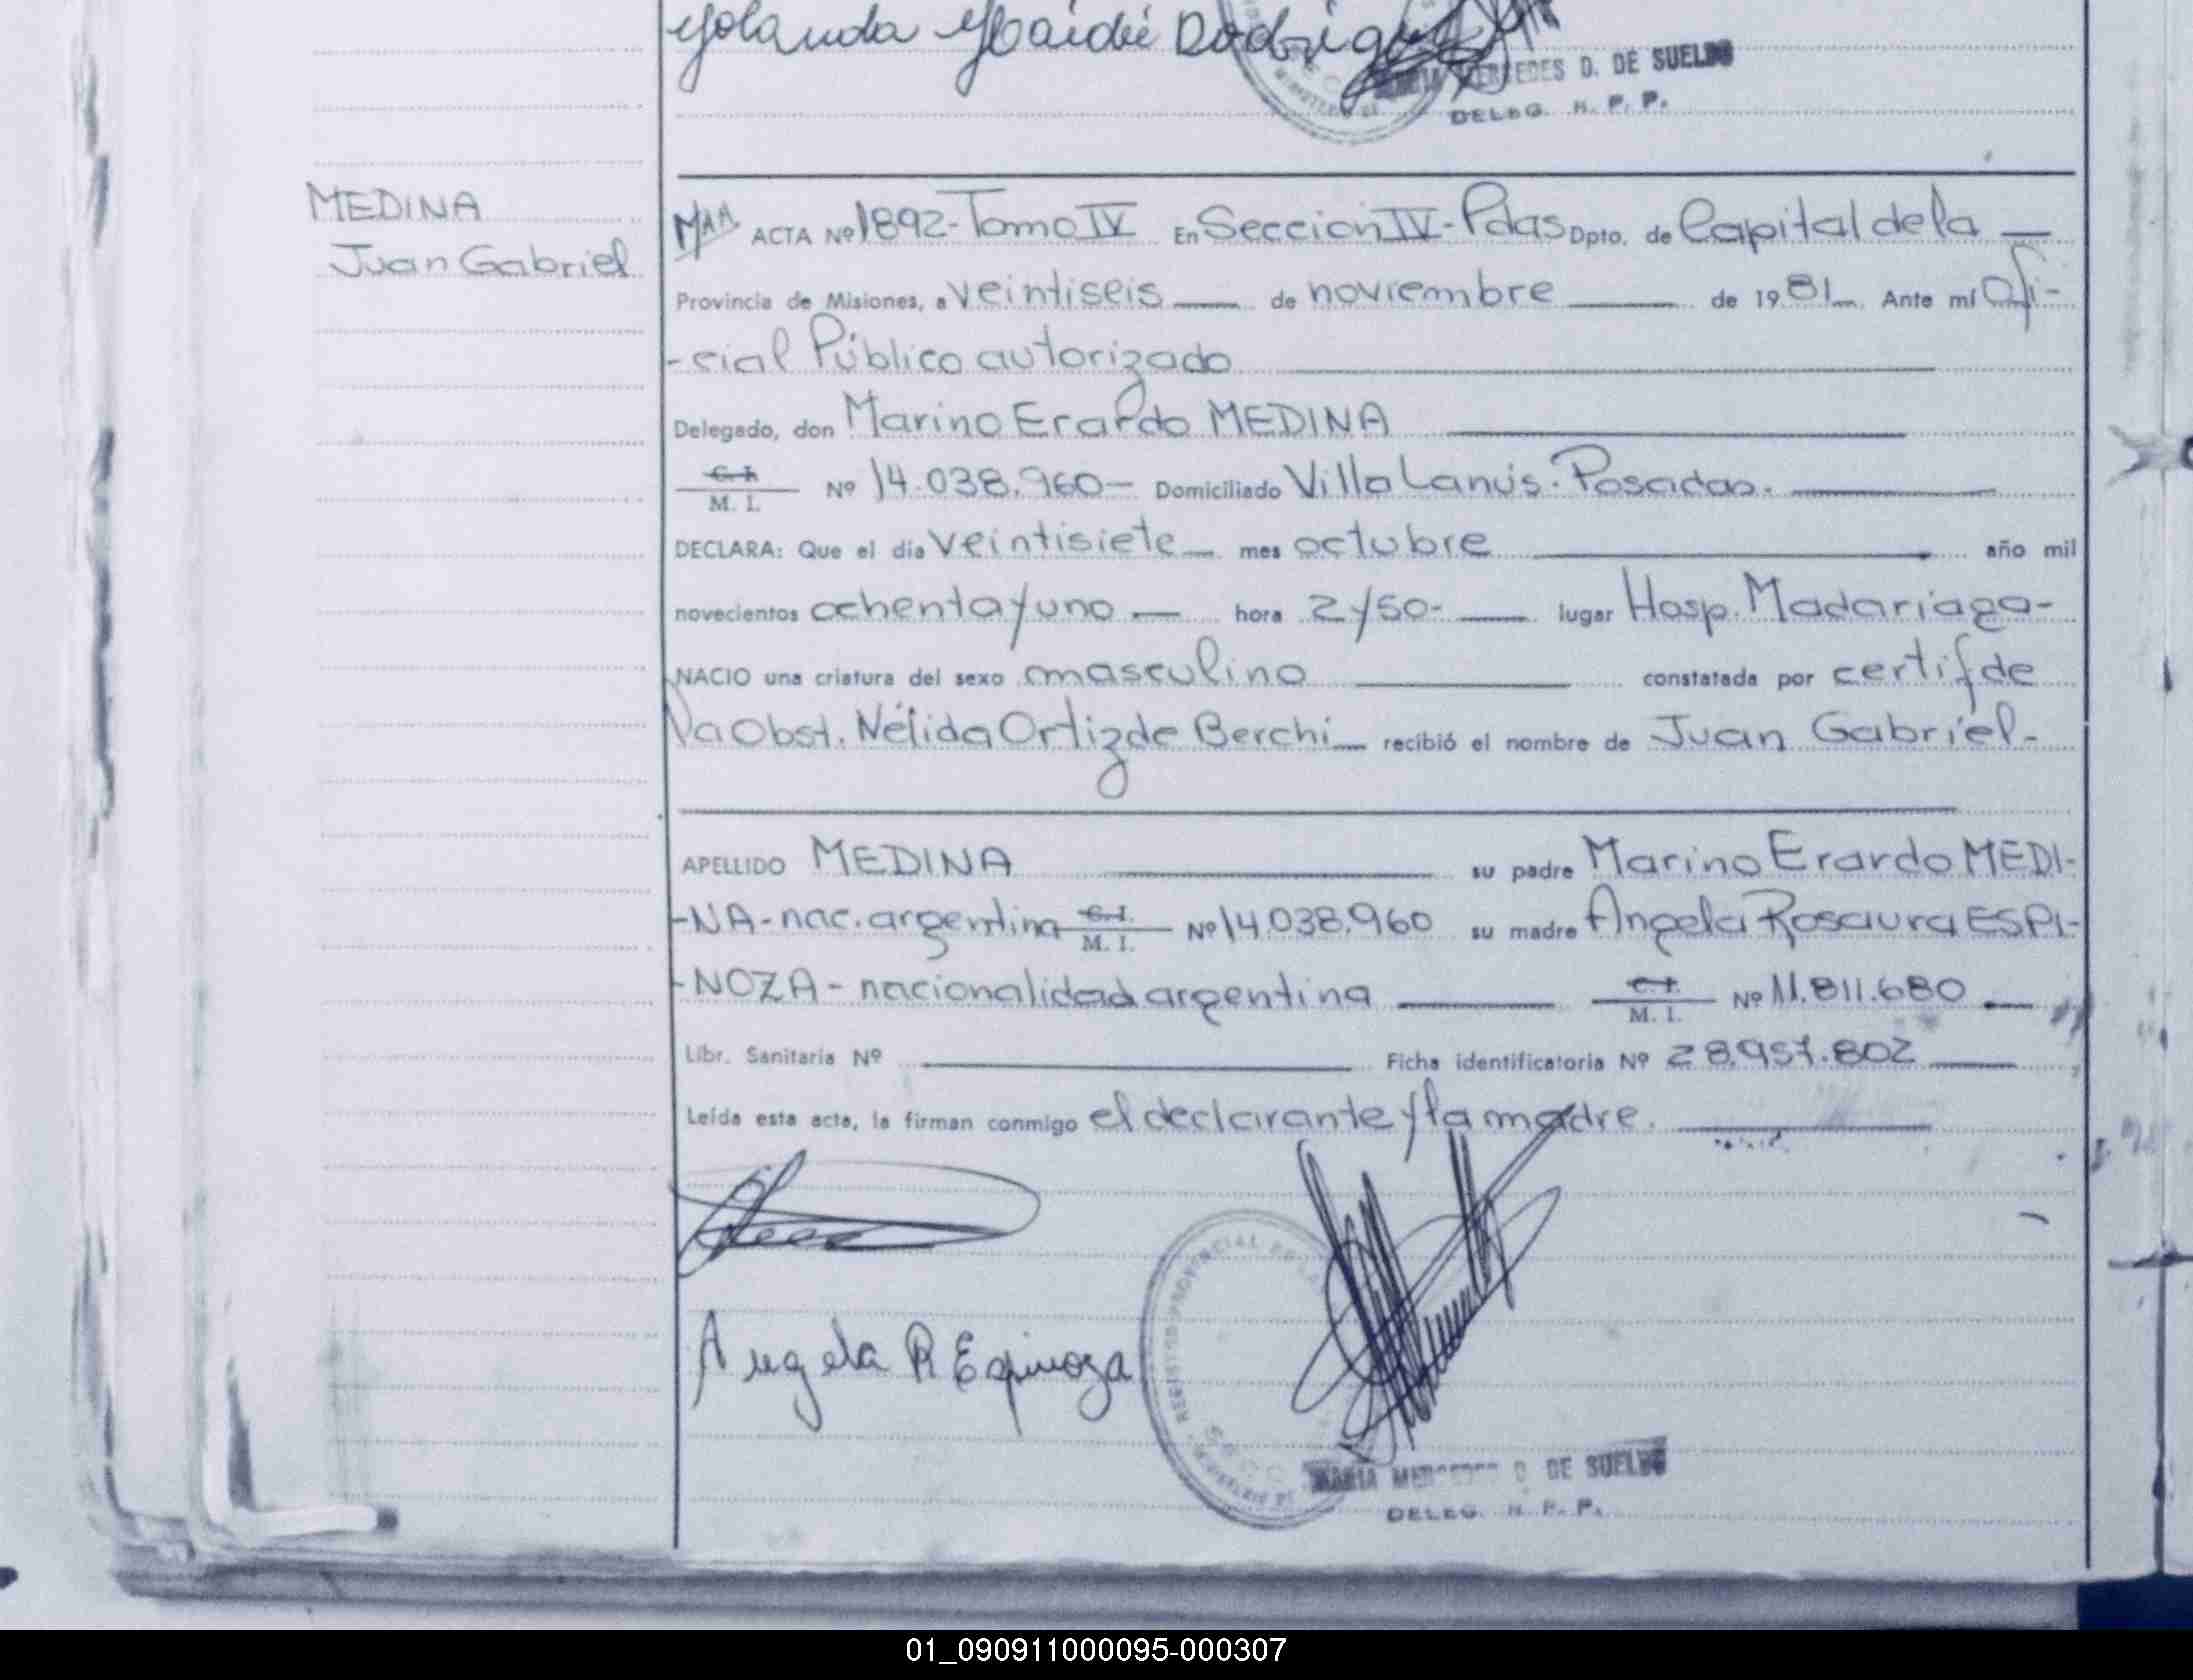 Yolanda Haideé Rodriguez
MARIA MERCEDES D. DE SUELDO
DELEG. R. P. P.
MEDINA
Juan Gabriel
ACTA Nº 1892- Tomo IV En Sección IV- Pdas Dpto. de Capital de la —
Provincia de Misiones, a veintiseis — de noviembre — de 1981 Ante mí Ofi-
-cial Público autorizado
Delegado, don Marino Erardo MEDINA
C. I.
M. I. Nº 14.038.960- Domiciliado Villa Lanús. Posadas.
DECLARA: Que el día veintisiete — mes octubre — año mil
novecientos ochenta y uno — hora 2 y 50- — lugar Hosp. Madariaga-
NACIO una criatura del sexo masculino — constatada por certif de
la Obst. Nélida Ortiz de Berchi — recibió el nombre de Juan Gabriel-
APELLIDO MEDINA — su padre Marino Erardo MEDI-
-NA- nac. argentina C. I. M. I. Nº 14.038.960 su madre Angela Rosaura ESPI-
-NOZA- nacionalidad argentina — C. I. M. I. Nº 11.811.680 —
Libr. Sanitaria Nº — Ficha identificatoria Nº 28.957.802 —
Leída esta acta, la firman conmigo el declarante y la madre.
Angela R Espinoza
MARIA MERCEDES D. DE SUELDO
DELEG. R. P. P.
01_090911000095-000307